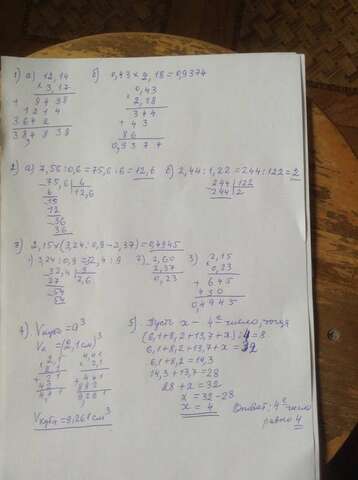 1) а) 12,14
× 3,17
+ 8498
1214
3642
38,4838
б) 0,43 × 2,18 = 0,9374
× 0,43
2,18
344
+ 43
86
0,9374
2) а) 7,56 : 0,6 = 75,6 : 6 = 12,6
75,6 | 6
6 | 12,6
15
12
36
36
б) 2,44 : 1,22 = 244 : 122 = 2
244 | 122
244 | 2
3) 2,15 × (3,24 : 0,9 - 2,37) = 0,4945
1) 3,24 : 0,9 = 32,4 : 9
32,4 | 9
27 | 3,6
54
54
2) 3,60
2,37
0,23
3) 2,15
× 0,23
+ 645
430
0,4945
4) Vкуба = a³
Vк = (2,1см)³
× 2,1
2,1
+ 21
42
4,41
× 4,41
2,1
+ 441
882
9,261
Vкуба = 9,261 см³
5) Пусть x - 4е число, тогда
(6,1+8,2+13,7+x):4=8
6,1+8,2+13,7+x=32
6,1+8,2=14,3
14,3+13,7=28
28+x=32
x=32-28
x=4
Ответ: 4е число
равно 4